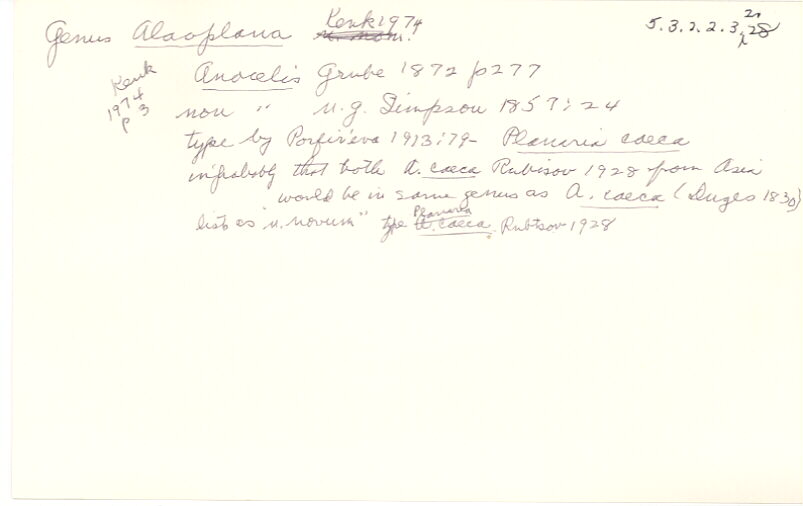 Genus Alaoplana Kenk 1974 n. nom. 5.3.2.2.3, 28 21
Kenk 1974 p 3
Anocelis Grube 1872 p277
non " n.g. Simpson 1857:24
type by Porfir'eva 1973:79 - Planaria caeca
improbably that both A. caeca Rubisov 1928 from Asia
would be in same genus as A. caeca (Duges 1830)
list as "n. novum" type A. caeca Planaria Rubtsov 1928